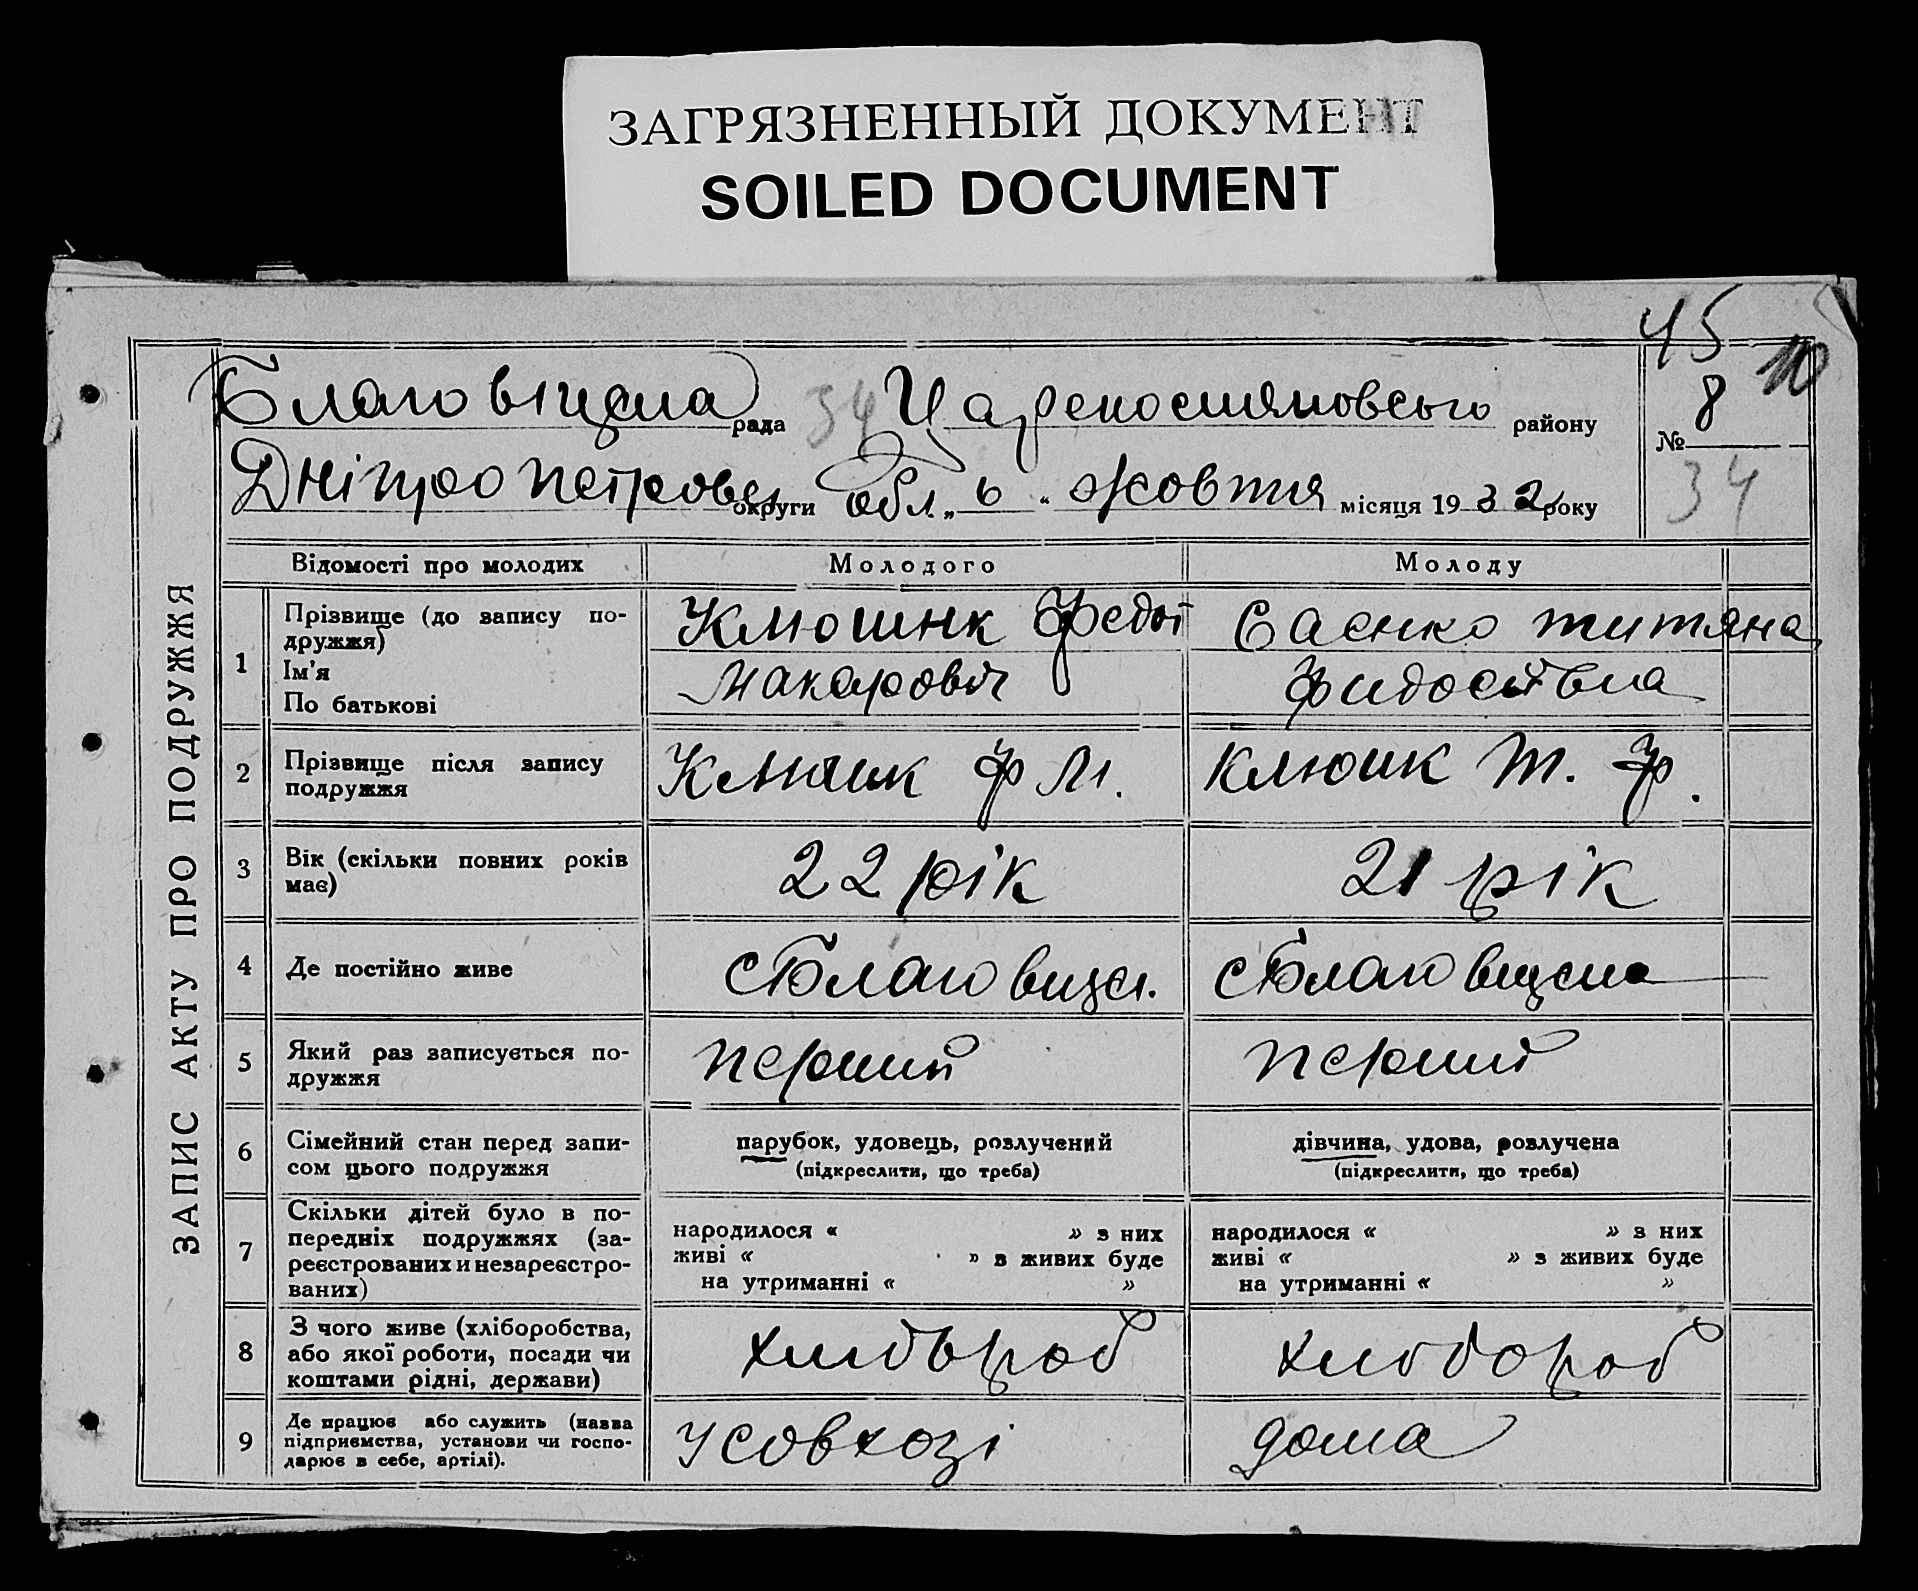 ЗАГРЯЗНЕННЫЙ ДОКУМЕНТ
SOILED DOCUMENT
45
10
ЗАПИС АКТУ ПРО ПОДРУЖЖЯ
рада 34 району
№ 8
34
округи обл. „ 6 “ жовтня місяця 1932 року
Відомості про молодих Молодого Молоду
1 Прізвище (до запису по-
дружжя)
Ім'я
По батькові
Саєнко Титяна
Макарович
2 Прізвище після запису
подружжя
Ф М. Клюшик Т. Ф.
3 Вік (скільки повних років
має)
22 рік 21 рік
4 Де постійно живе
5 Який раз записується по-
дружжя
перший перший
6 Сімейний стан перед запи-
сом цього подружжя
парубок, удовець, розлучений дівчина, удова, розлучена
(підкреслити, що треба) (підкреслити, що треба)
7 Скільки дітей було в по-
передніх подружжях (за-
реєстрованих и незареєстро-
ваних)
народилося « » з них народилося « » з них
живі « » в живих буде живі « » з живих буде
на утриманні « » на утриманні « »
8 З чого живе (хліборобства,
або якої роботи, посади чи
коштами рідні, держави)
9 Де працює або служить (назва
підприємства, установи чи госпо-
дарює в себе, артілі).
у совхозі дома